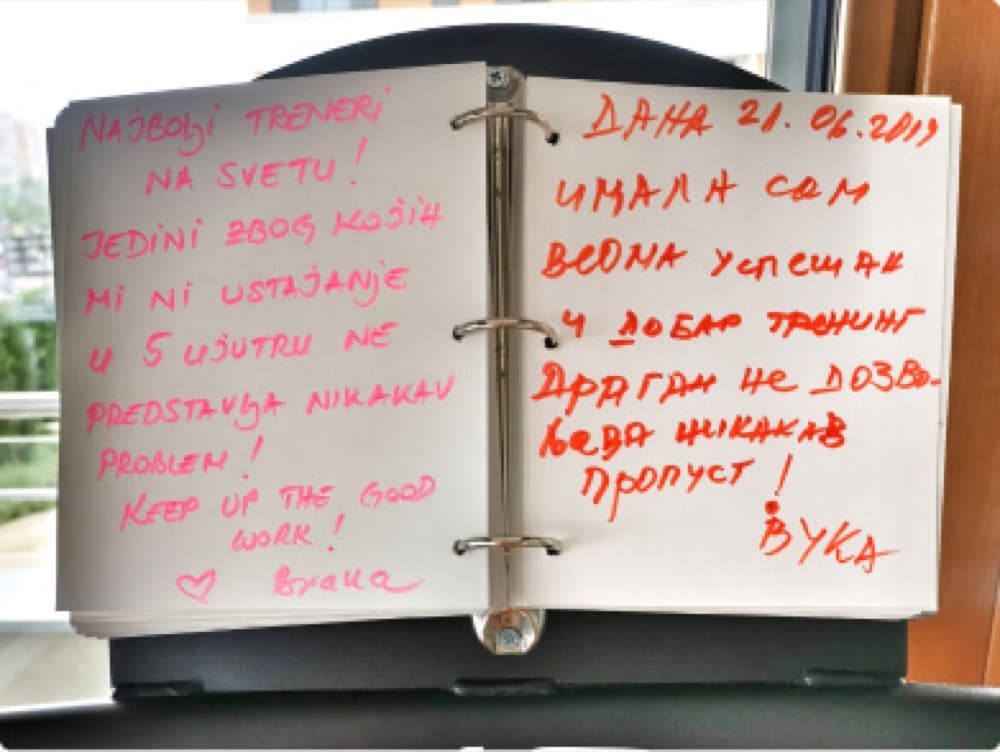 NAJBOLJI TRENERI
NA SVETU!
JEDINI ZBOG KOJIH
MI NI USTAJANJE
U 5 UJUTRU NE
PREDSTAVLJA NIKAKAV
PROBLEM!
KEEP UP THE GOOD
WORK!
♡
ДАНА 21.06.2019
ИМАЛА САМ
ВЕОМА УСПЕШАН
И ДОБАР ТРЕНИНГ
ДРАГАН НЕ ДОЗВО-
ЉАВА НИКАКАВ
ПРОПУСТ!
ВУКА